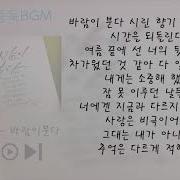 BGM
바람이 분다 시린 향기
시간은 되돌린다
여름 끝에 선 너의 뒷
차가웠던 것 같아 다 알
내게는 소중해했
잠 못 이루던 날들
너에겐 지금과 다르지
사랑은 비극이어
그대는 내가 아니
추억은 다르게 적히
바람이분다